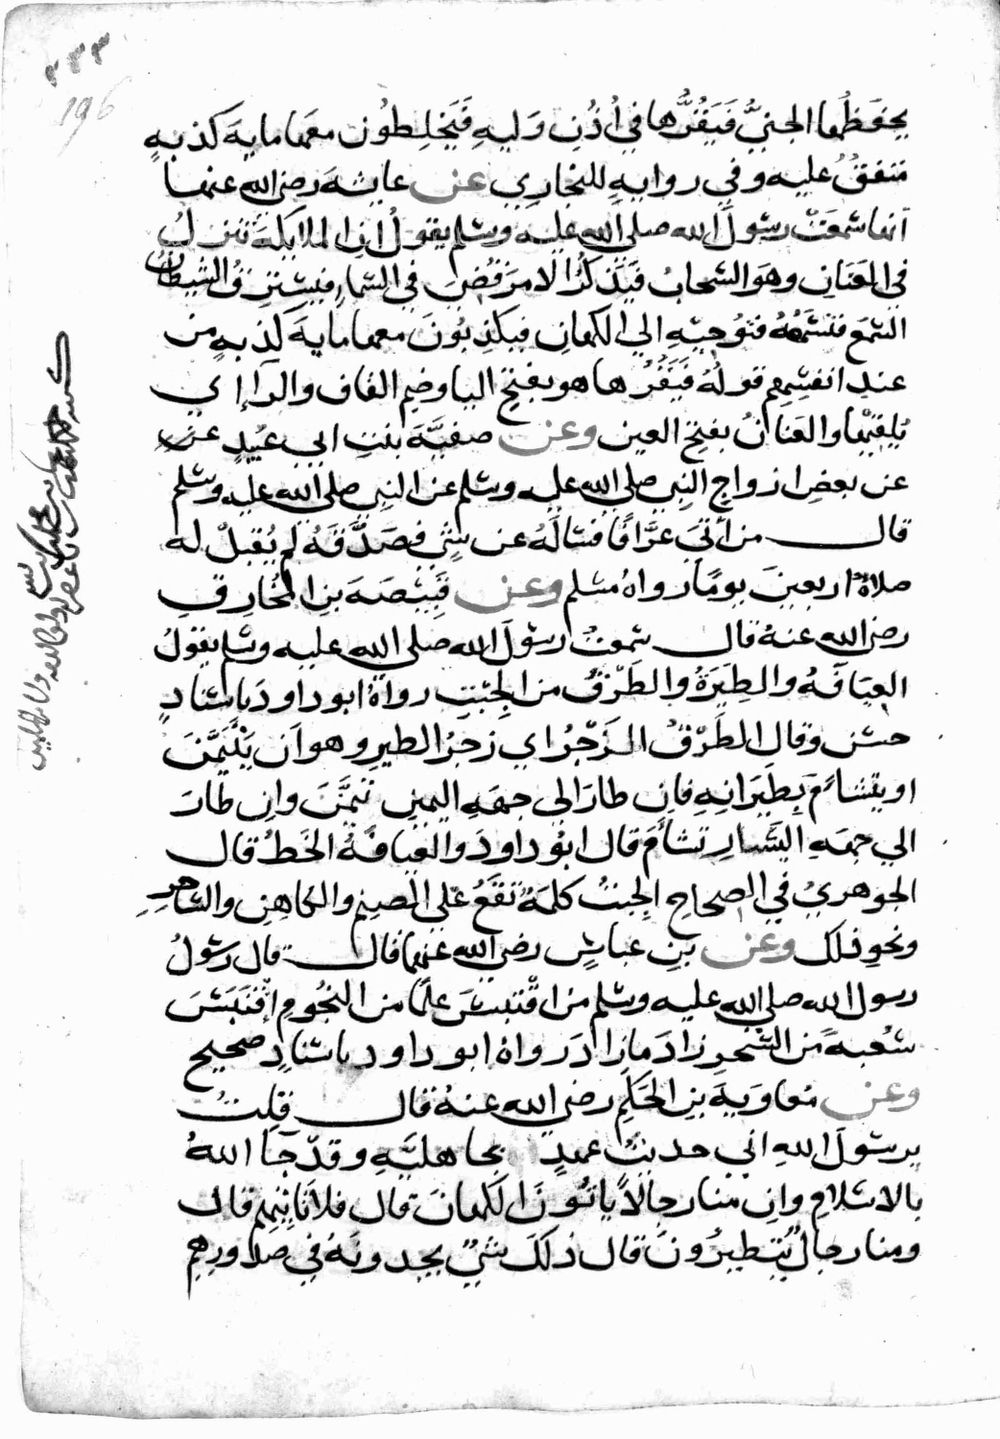 ٢٣٣
196
يحفظها الجنيُّ فَيَقُرُّها في اُذُنِ وَليهِ فَيَخلِطُون معَها مايةَ كَذبهٍ
متفقٌ عليه وفي روايهٍ للبخاري عن عايشهَ رضي الله عنها
انها سَمعَتْ رسُولَ الله صلي الله عليه وسَلم يقولُ انِ الملايكةَ تنزلُ
في العَنَانِ وهوَ السَّحابُ فَتَذكُرُ الامرَ قُضِيَ في السَّمآ فيَسْترِقُ الشيطانُ
السَّمعَ فتسْمَعُهُ فتوُحِيْهِ الي الكهانِ فيكذِبُونَ معها مايةَ كَذبهٍ من
عندِ انفسِهِم قولُهُ فَيَقُرُّها هو بفتح اليا وضم القاف والرآ اي
يُلقيهْا والعَنانُ بفتح العين وعن صفيَّهَ بنتِ ابي عُبَيدٍ عن
عن بعضِ ازواجِ النبي صلي الله عليه وسَلم عن النبي صلي الله عليه وسَلم
قال من أتَى عرَّافًا فسَالَهُ عن شيٍ فصَدَّقَهُ لم يُقبلْ له
صلاةٌ اربعينَ يومًا رواهُ مسْلم وعن قَبِيْصَهَ بنِ المُخارقِ
رضي الله عنهُ قال سَمعتُ رسُولَ الله صلي الله عليه وسَلم يقولُ
العِيَافَهُ والطِيَرَةُ والطَرْقُ من الجِبْتِ رواهُ ابوداودَ باِسْنادٍ
حسَنٍ وقال الطَرْقُ الزَّجْرُ اي زَجرُ الطيرِ وهو اَن يَتَيَمَّنَ
او يتشاَمَ بِطَيَرَانِهِ فاِن طارَ الي جههِ اليمينِ تيمَّنَ واِن طارَ
الي جههِ اليَسارِ تشأَمَ قال ابُو داودَ والعيافَهُ الخَطُ قال
الجوهريُ في الصحاحِ الجِبتُ كلمَهٌ تقَعُ علي الصنمِ والكاهِنِ والسَاحرِ
ونحوِ ذلك وعن بنِ عباسٍ رضي الله عنهما قال قال رسُولُ
رسول الله صلي الله عليه وسَلم من اقْتبسَ عِلمًا من النجُومِ اِقتَبَسَ
شعْبهً من السِّحرِ زادَ مازادَ رواهُ ابو داود باسْنادٍ صحيحٍ
وعن معاوَيةَ بنِ الحَكَمِ رضي الله عنهُ قال قلتُ
يرسُولَ اللهِ اني حديثُ عهدٍ بجاهليَّهٍ وقدْ جآ اللهُ
بالاسْلامِ واِن منا رجالاً ياتُونَ الكهانَ قال فلا تَاتِهِم قال
ومنا رجالٌ يَتطيرُونَ قال ذلكَ شيٌ يجدونَهُ في صدورِهِم